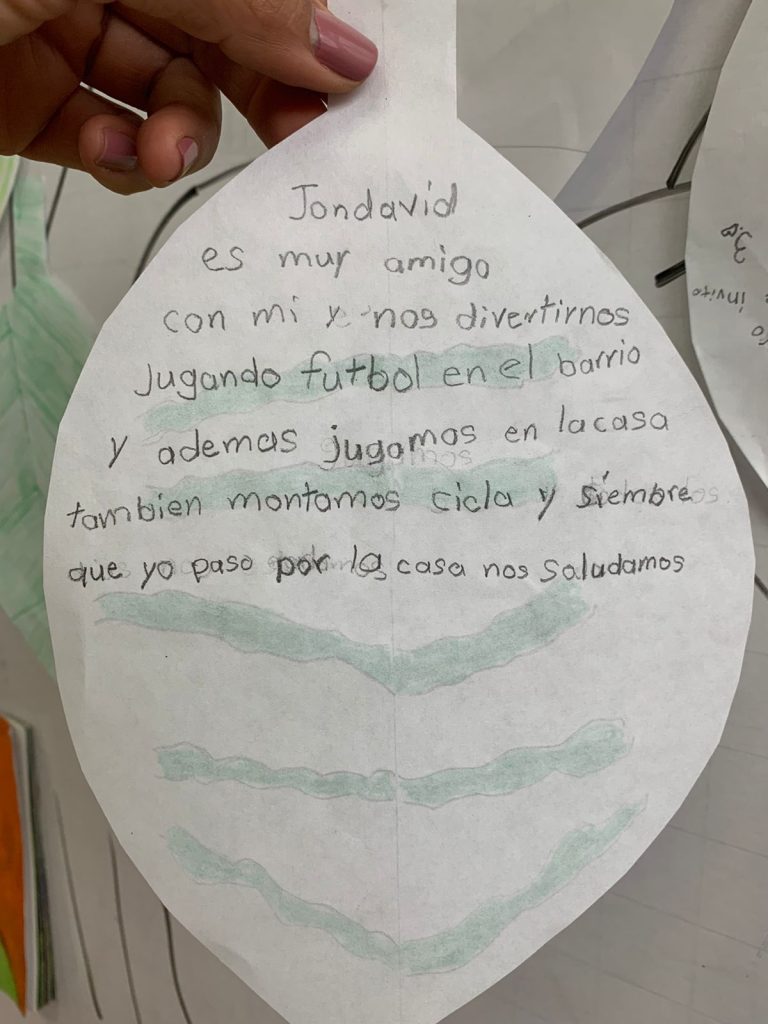 Jondavid
es muy amigo
con mi y nos divertirnos
Jugando futbol en el barrio
y ademas jugamos en la casa
tambien montamos cicla y siembre
que yo paso por la casa nos saludamos
invito